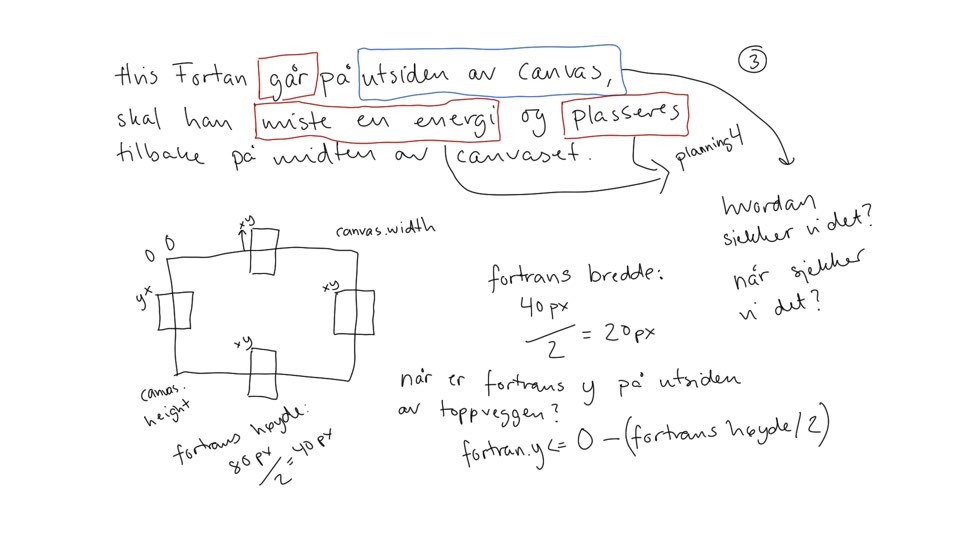 Hvis Fortan går på utsiden av canvas,
skal han miste en energi og plasseres
tilbake på midten av canvaset.
3
planning4
hvordan
sjekker vi det?
når sjekker
vi det?
0 0
xy
canvas.width
yx
xy
xy
canvas.
height
fortrans høyde:
80px/2 = 40px
fortrans bredde:
40px/2 = 20px
når er fortrans y på utsiden
av toppveggen?
fortran.y <= 0 - (fortrans høyde/2)